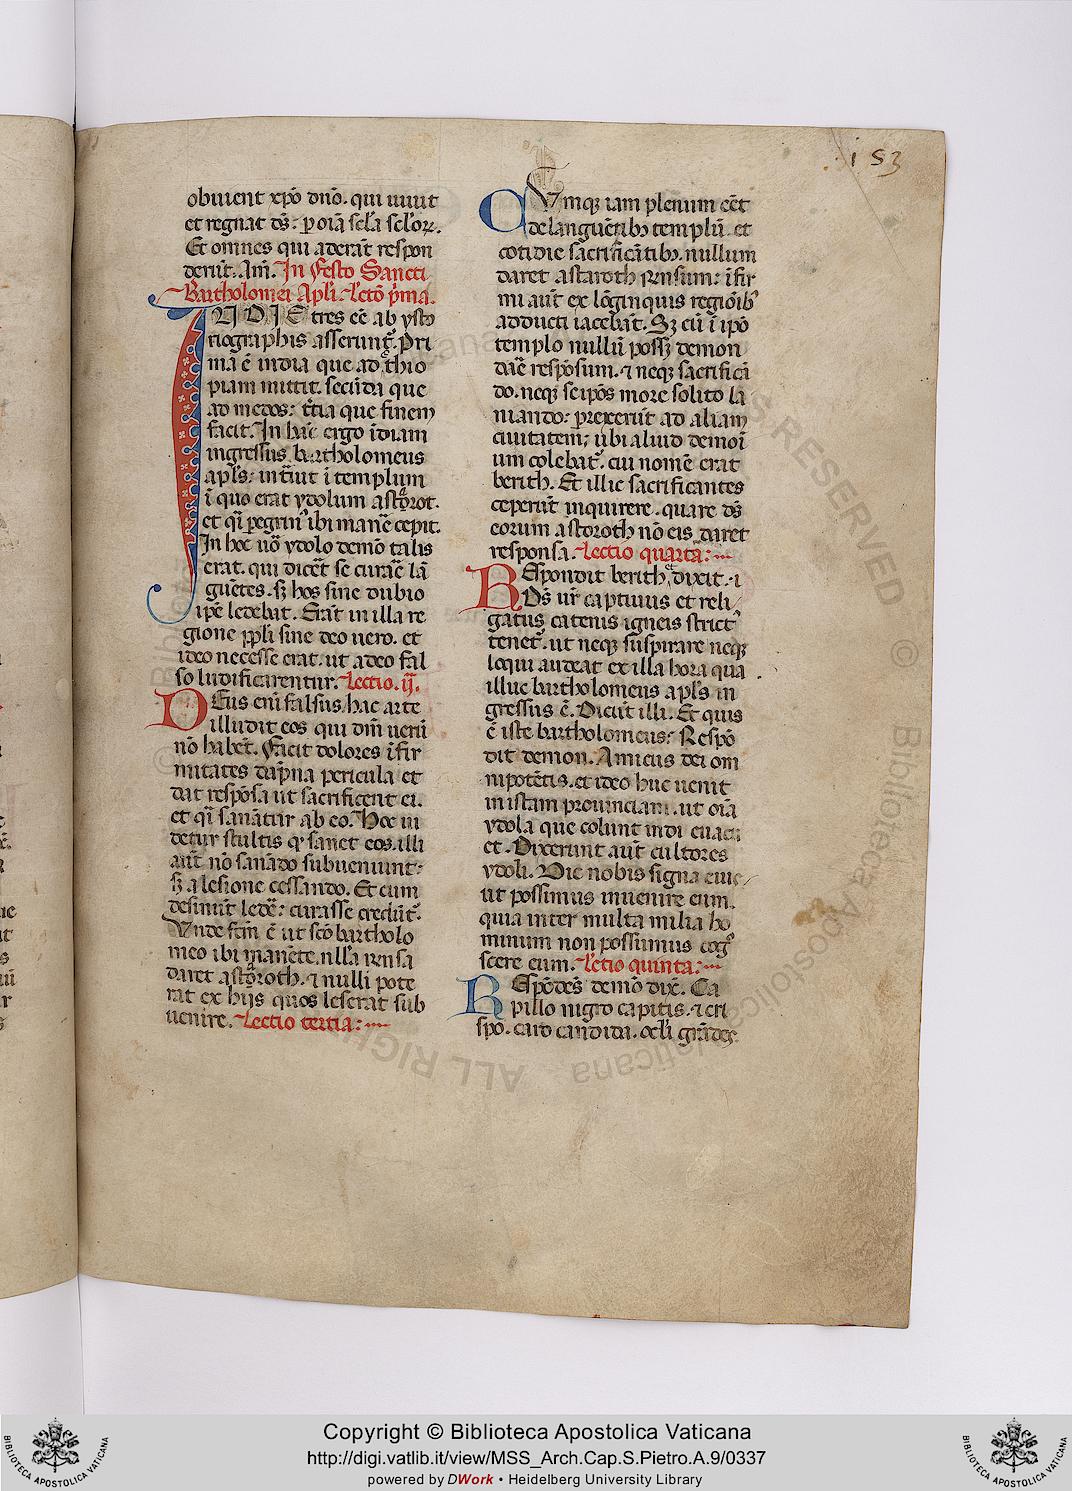 153
obuient xp̄o dn̄o. qui uiuit
et regnat ds̄. ꝑ oīa scl̄a scl̄oꝝ.
Et omnes qui aderāt respon
derūt. Am̄. In festo Sancti
Bartholomei Apl̄i. Lectō p̄ma.
INDIE tres eē ab ysto
riographis asserunt᷑. Pri
ma ē india que ad ethio
piam mittit. secūda que
ad medos: t̄tia que finem
facit. In hāc ergo īdiam
ingressus bartholomeus
apl̄s: intūit ī templum
ī quo erat ydolum astarot.
et qī pegrinꝰ ibi manē cepit.
In hoc uō ydolo demō talis
erat. qui dicēt se curaē lā
guētes. sꝫ hos sine dubio
ipē ledebat. Erāt in illa re
gione ppl̄i sine deo uero. et
ideo necesse erat. ut a deo fal
so ludificarentur. Lectio. ij.
DEus enī falsus hac arte
illudit eos qui dm̄ uerū
nō habēt. Facit dolores īfir
mitates dāpna pericula et
dat respōsa ut sacrificent ei.
et qī sanātur ab eo. Hoc ui
detur stultis ꝙ sanet eos. illi
aūt nō sanādo subueniunt:
sꝫ a lesione cessando. Et cum
desinūt ledē: curasse credūt᷑.
Vnde fc̄m ē ut scō bartholo
meo ibi manēte. nll̄a rn̄sa
daret astaroth. ⁊ nulli pote
rat ex hijs quos leserat sub
uenire. Lectio tertia:
CVmqꝫ iam plenum eēt
de languētibꝰ templū. et
cotidie sacrificātibꝰ. nullum
daret astaroth rn̄sum: īfir
mi aūt ex lōginquis regiōibꝰ
adducti iacebāt. Sꝫ cū ī ipō
templo nullū possꝫ demon
daē respōsum. ⁊ neqꝫ sacrificā
do. neqꝫ seipōs more solito la
niando: prexerūt ad aliam
ciuitatem: ubi aliud demoī
um colebat᷑. cui nomē erat
berith. Et illic sacrificantes
ceperūt inquirere. quare ds̄
eorum astoroth nō eis daret
responsa. Lectio quarta:
REspondit berith ⁊ dixit. i
Ds̄ ur̄ captiuus et reli
gatus catenis igneis strictꝰ
tenet᷑. ut neqꝫ suspirare neqꝫ
loqui audeat ex illa hora qua
illuc bartholomeus apl̄s in
gressus ē. Dicūt illi. Et quis
ē iste bartholomeus: Respō
dit demon. Amicus dei om
nipotētis. et ideo huc uenit
in istam prouinciam. ut oīa
ydola que colunt indi euacu
et. Dixerunt aūt cultores
ydoli. Dic nobis signa eius
ut possimus inuenire eum.
quia inter multa milia ho
minum non possumus cogꝰ
scere eum. Lectio quinta:
REspōdēs demō dix̄. Ca
pillo nigro capitis. ⁊ cri
spo. caro candida. ocl̄i grādes.
Copyright © Biblioteca Apostolica Vaticana
http://digi.vatlib.it/view/MSS_Arch.Cap.S.Pietro.A.9/0337
powered by DWork • Heidelberg University Library
BIBLIOTECA APOSTOLICA VATICANA
BIBLIOTECA APOSTOLICA VATICANA